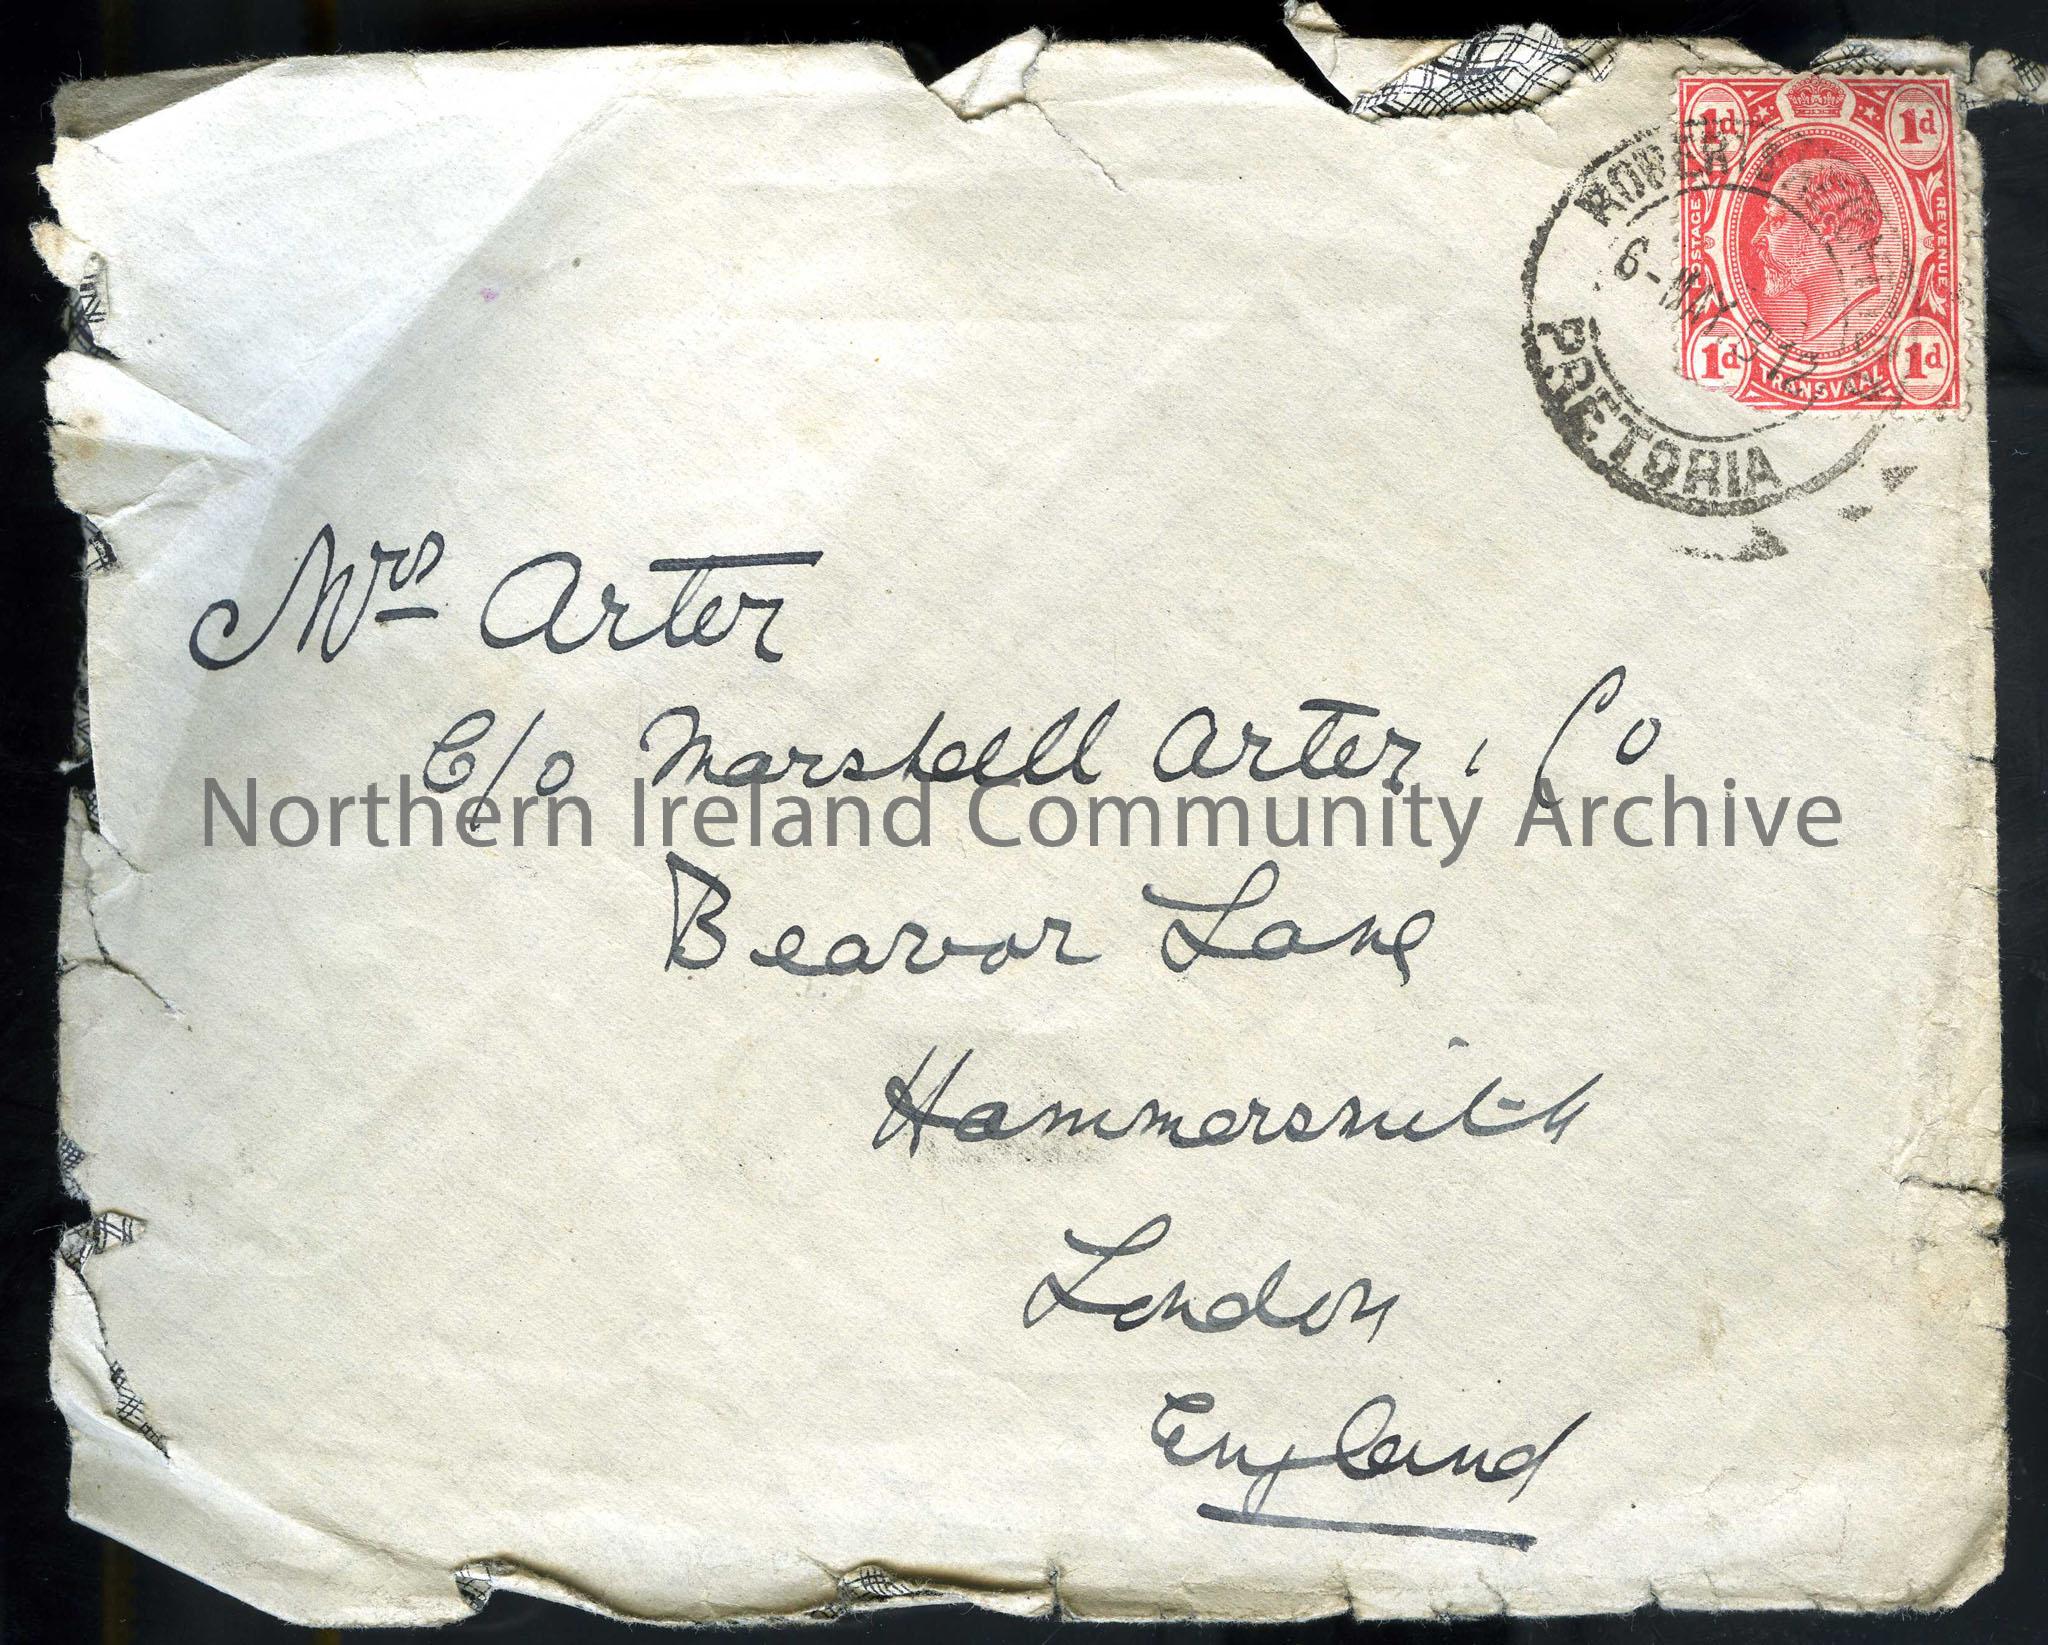 1d 1d
POSTAGE REVENUE
1d TRANSVAAL 1d
6-MAY 1912
PRETORIA
Mrs Arter
C/o Marshall Arter, Co
Northern Ireland Community Archive
Beavor Lane
Hammersmith
London
England